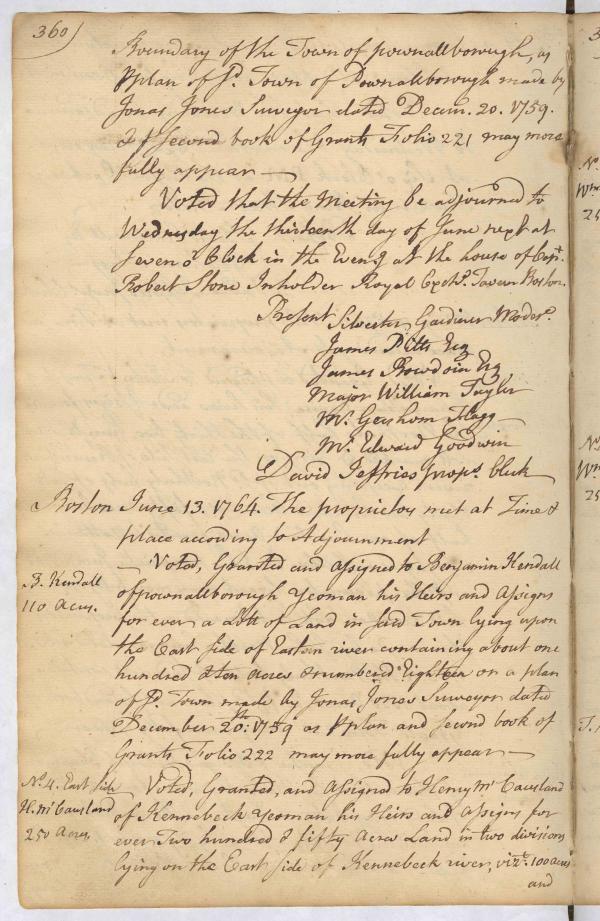 360)
Boundary of the Town of pownallborough, as
pplan of sd. Town of Pownallborough made by
Jonas Jones Surveyor dated Decem. 20. 1759.
& second book of Grants Folio 221 may more
fully appear —
Voted that the Meeting be adjourned to
Wednesday the thirteenth day of June next at
Seven o'Clock in the Eveng at the house of Capt.
Robert Stone Inholder Royal Exchs. Tavern Boston.
Present Silvester Gardiner Moder.
James Pitts Esq
James Bowdoin Esq
Major William Tayler
Mr. Gershom Flagg
Mr. Edward Goodwin
David Jeffries props. Clerk
Boston June 13. 1764. The proprietors met at Time &
place according to Adjournment
B. Kendall
110 Acres.
— Voted, Granted and assigned to Benjamin Kendall
of pownallborough Yeoman his Heirs and Assigns
for ever a Lott of Land in said Town lying upon
the East side of Eastern river containing about one
hundred & ten acres & numbered Eighteen on a plan
of sd. Town made by Jonas Jones Surveyor dated
December 20th: 1759 as pplan and second book of
Grants Folio 222 may more fully appear —
No. 4. East side
H. McCausland
250 Acres
Voted, Granted, and Assigned to Henry McCausland
of Kennebeck Yeoman his Heirs and Assigns for
ever Two hundred & fifty Acres Land in two divisions
lying on the East side of Kennebeck river, vizt. 100 acres
and